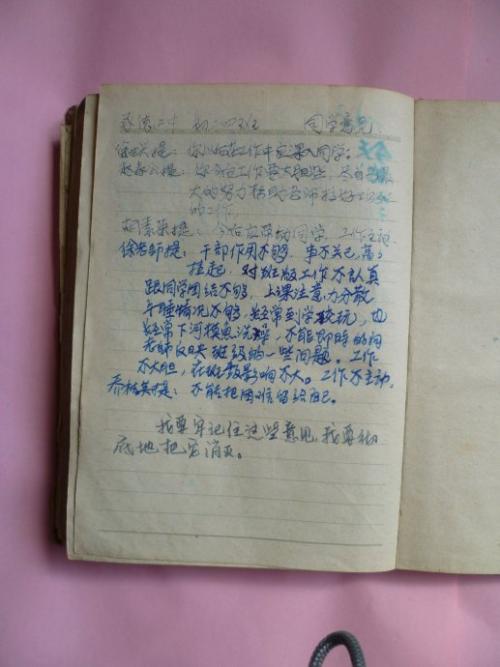 二中 初二四班 同学意见
提：你以后在工作中应深入同学。
提：你今后工作要大胆些，尽自己最
大的努力帮助老师搞好班级
的工作。
胡素 提：今后应带动同学，工作主动
徐老师提：干部作用不够，事不关己，高高
挂起，对班级工作不认真
跟同学团结不够，上课注意力分散，
午睡情况不够，经常到学校玩，也
经常下河摸鱼洗澡，不能即时的向
老师反映班级的一些问题。工作
不大胆，在班级影响不大。工作不主动，
乔 提：不能把困难留给自己。
我要牢记住这些意见，我要彻
底地把它消灭。